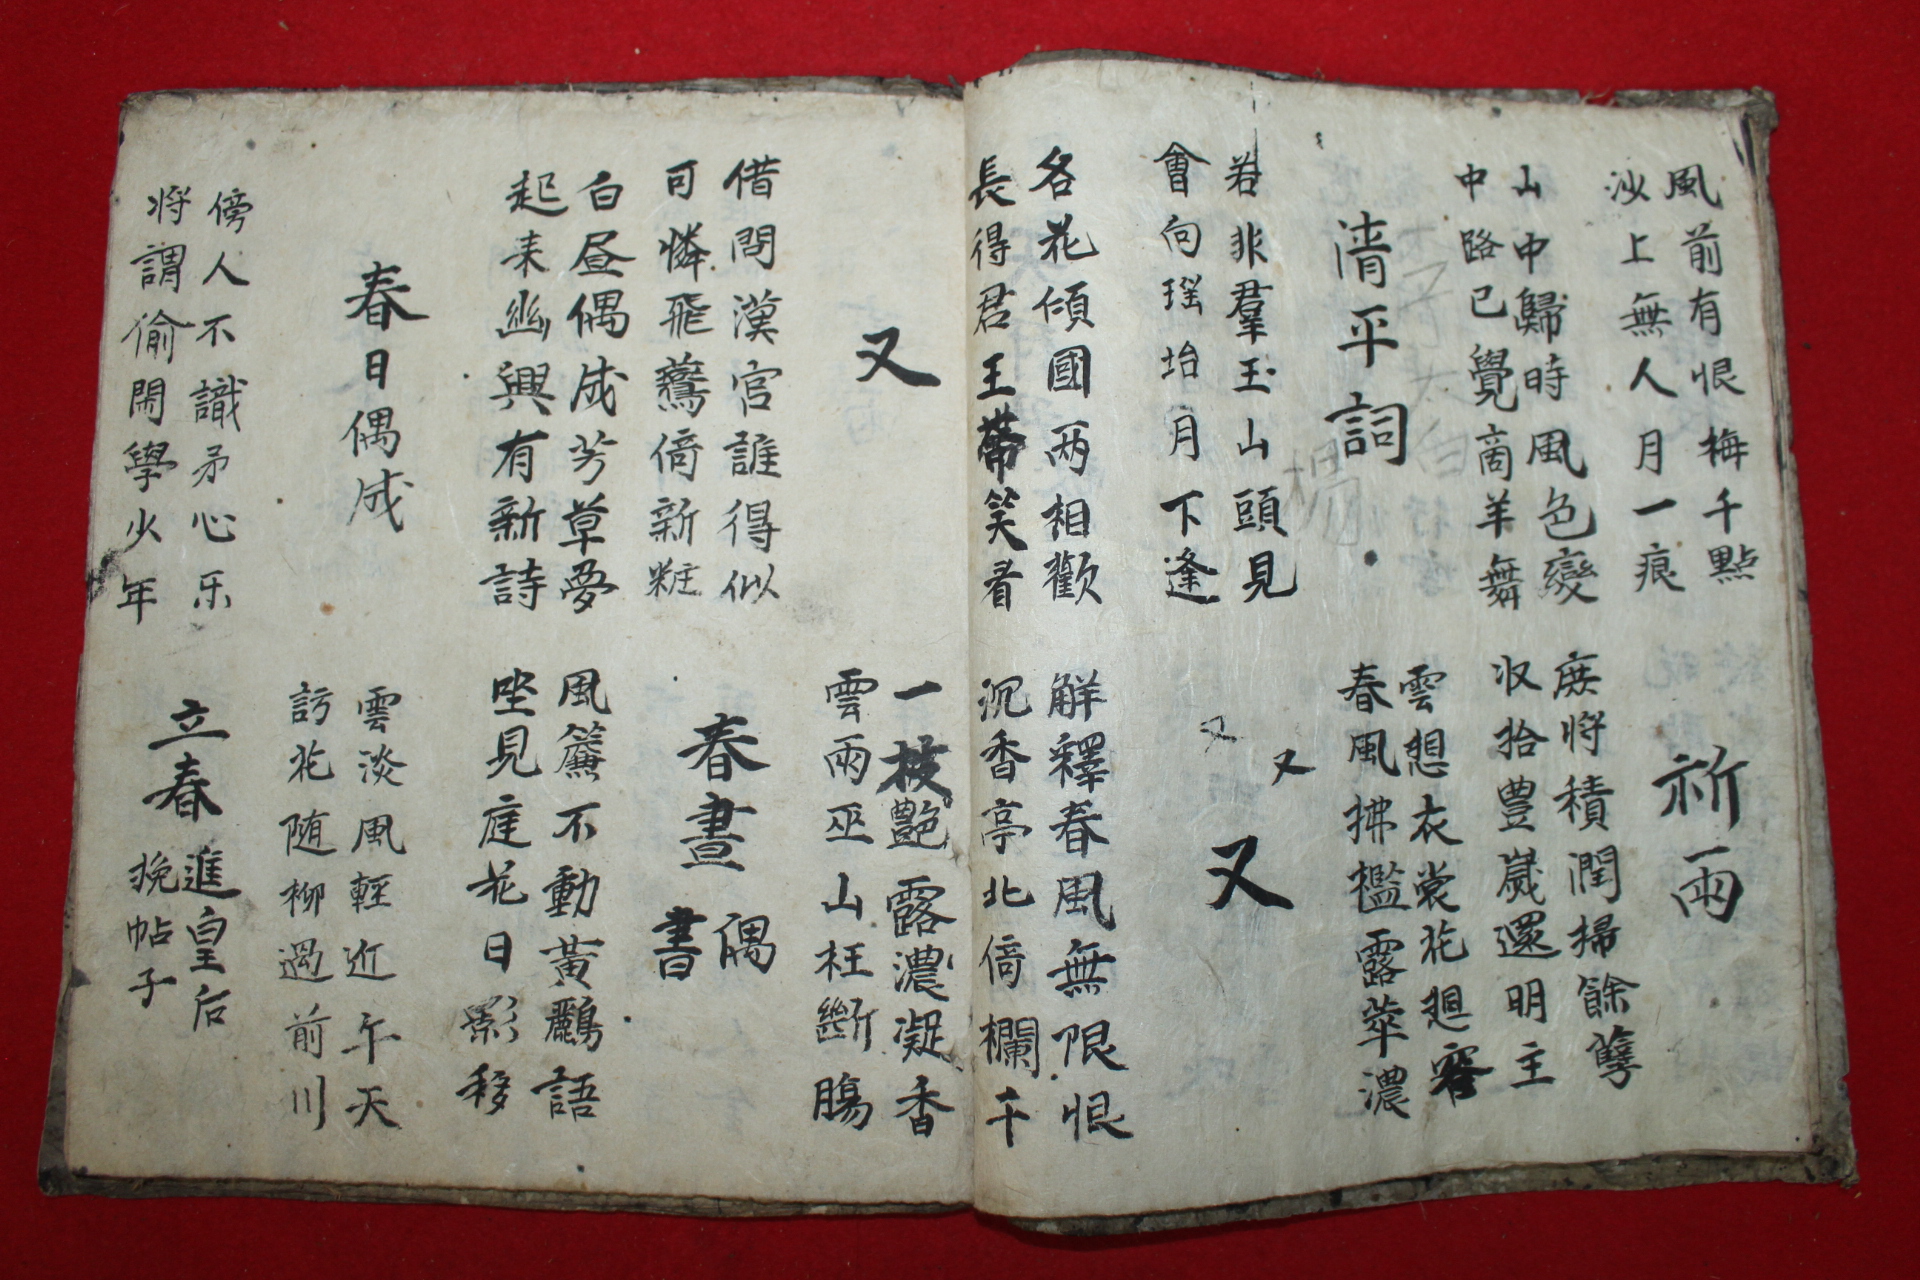 風前有恨梅千點
沙上無人月一痕
祈雨
山中歸時風色變
中路已覺商羊舞
庶將積潤掃餘孽
収拾豊歲還明主
清平詞
雲想衣裳花廻容
春風拂檻露華濃
若非羣玉山頭見
會向瑶坮月下逢
又
又
又
各花傾國兩相歡
長得君王帶笑看
解釋春風無限恨
沉香亭北倚欄干
又
一枝艶露濃凝香
雲雨巫山枉斷膓
借問漢宮誰得似
可憐飛鷰倚新粧
春晝偶書
白昼偶成芳草夢
起来幽興有新詩
風簾不動黃鸝語
坐見庭花日影移
春日偶成
雲淡風輕近午天
訪花随柳過前川
傍人不識矛心乐
将謂偷閑學少年
立春
進皇后
挽帖子